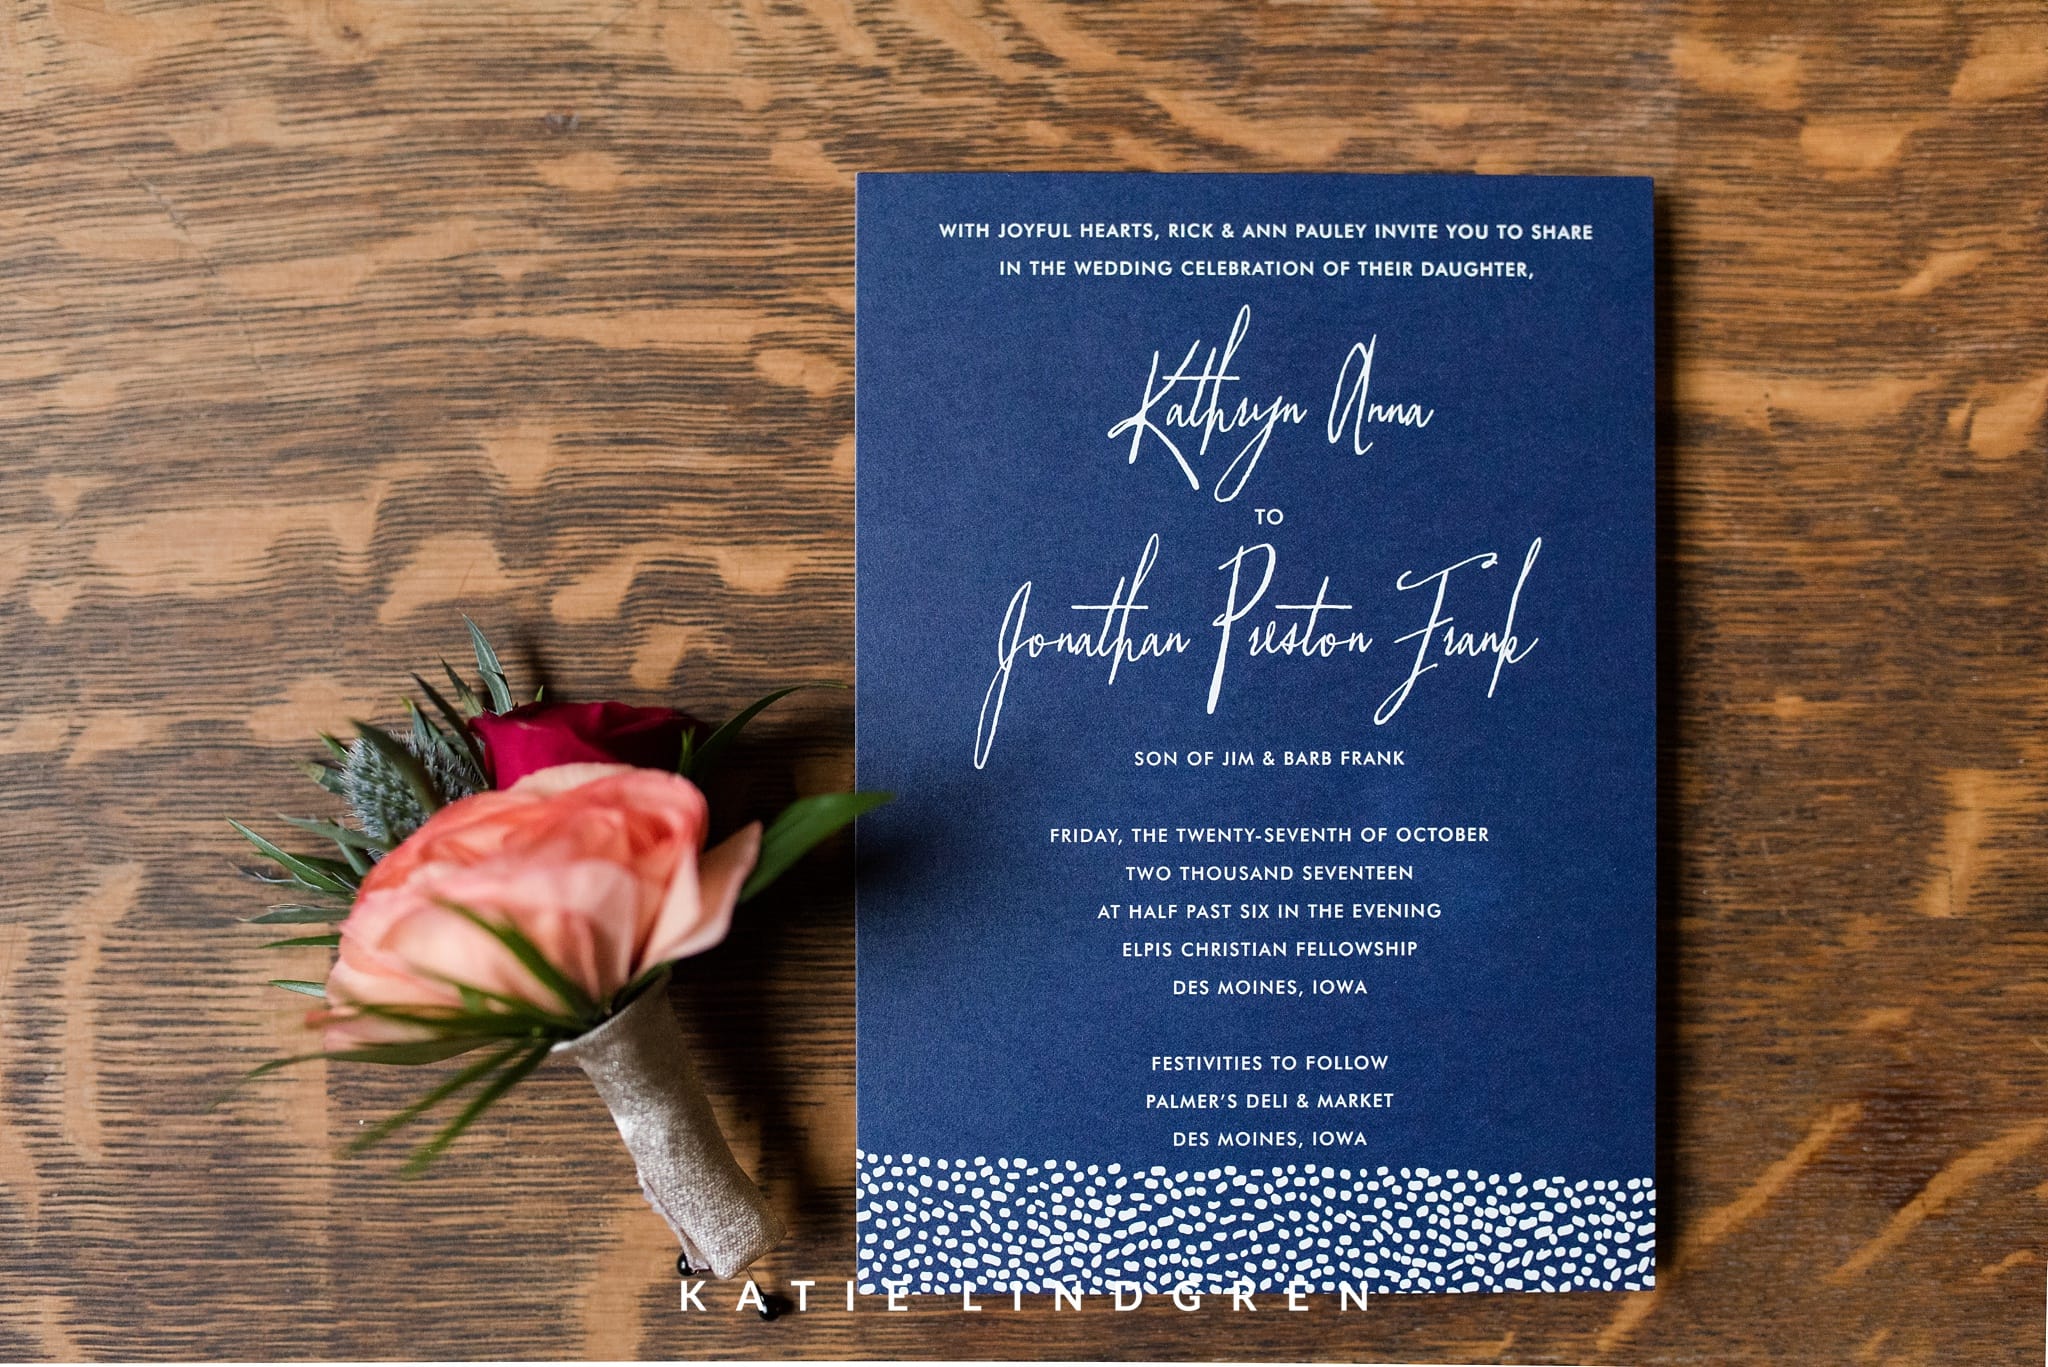 WITH JOYFUL HEARTS, RICK & ANN PAULEY INVITE YOU TO SHARE
IN THE WEDDING CELEBRATION OF THEIR DAUGHTER,
Kathryn Anna
TO
Jonathan Preston Frank
SON OF JIM & BARB FRANK
FRIDAY, THE TWENTY-SEVENTH OF OCTOBER
TWO THOUSAND SEVENTEEN
AT HALF PAST SIX IN THE EVENING
ELPIS CHRISTIAN FELLOWSHIP
DES MOINES, IOWA
FESTIVITIES TO FOLLOW
PALMER'S DELI & MARKET
DES MOINES, IOWA
KATIE LINDGREN